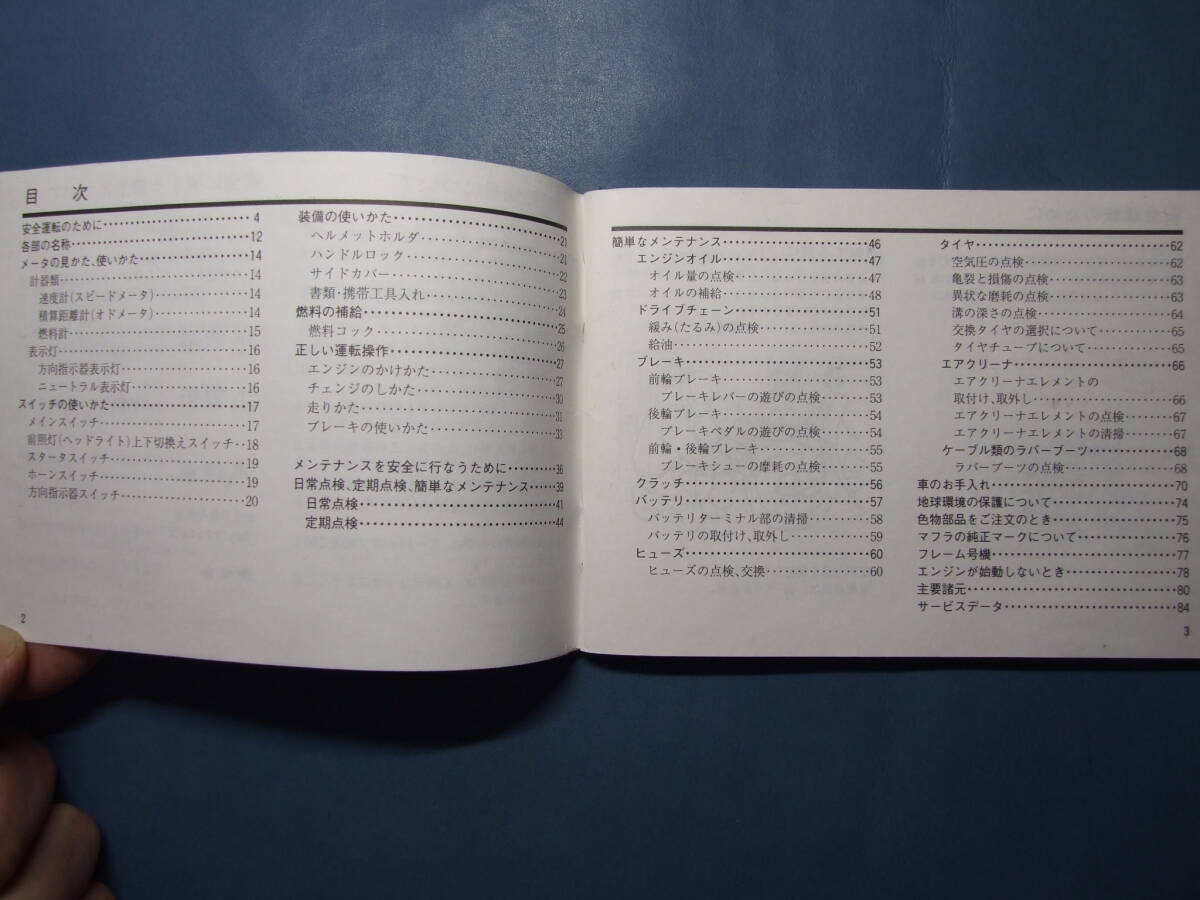 目 次
安全運転のために 4
各部の名称 12
メータの見かた、使いかた 14
計器類 14
速度計(スピードメータ) 14
積算距離計(オドメータ) 14
燃料計 15
表示灯 16
方向指示器表示灯 16
ニュートラル表示灯 16
スイッチの使いかた 17
メインスイッチ 17
前照灯(ヘッドライト)上下切換えスイッチ 18
スタータスイッチ 19
ホーンスイッチ 19
方向指示器スイッチ 20
装備の使いかた 21
ヘルメットホルダ 21
ハンドルロック 22
サイドカバー 23
書類・携帯工具入れ 24
燃料の補給 25
燃料コック 26
正しい運転操作 27
エンジンのかけかた 27
チェンジのしかた 30
走りかた 31
ブレーキの使いかた 33
メンテナンスを安全に行なうために 36
日常点検、定期点検、簡単なメンテナンス 39
日常点検 41
定期点検 44
2
簡単なメンテナンス 46
エンジンオイル 47
オイル量の点検 47
オイルの補給 48
ドライブチェーン 51
緩み(たるみ)の点検 51
給油 52
ブレーキ 53
前輪ブレーキ 53
ブレーキレバーの遊びの点検 53
後輪ブレーキ 54
ブレーキペダルの遊びの点検 54
前輪・後輪ブレーキ 55
ブレーキシューの摩耗の点検 55
クラッチ 56
バッテリ 57
バッテリターミナル部の清掃 58
バッテリの取付け、取外し 59
ヒューズ 60
ヒューズの点検、交換 60
タイヤ 62
空気圧の点検 62
亀裂と損傷の点検 63
異状な磨耗の点検 63
溝の深さの点検 64
交換タイヤの選択について 65
タイヤチューブについて 65
エアクリーナ 66
エアクリーナエレメントの
取付け、取外し 66
エアクリーナエレメントの点検 67
エアクリーナエレメントの清掃 67
ケーブル類のラバーブーツ 68
ラバーブーツの点検 68
車のお手入れ 70
地球環境の保護について 74
色物部品をご注文のとき 75
マフラの純正マークについて 76
フレーム号機 77
エンジンが始動しないとき 78
主要諸元 80
サービスデータ 84
3